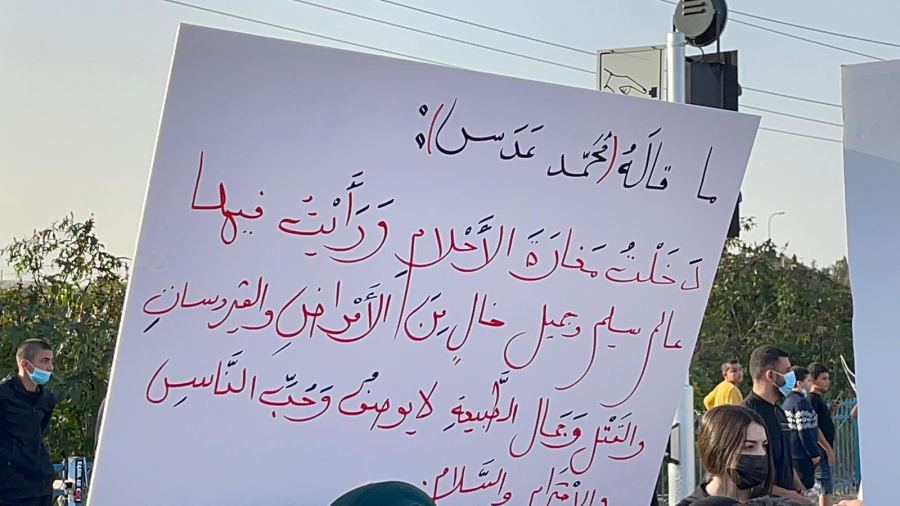 ما قالَهُ (مُحَمَّد عَدَس):
دَخَلْتُ مَغارَةَ الأَحْلام وَرَأَيْتُ فيها
عالم سليم وجميل خالٍ مِنَ الأَمْراضِ والڤيروسات
والقَتْل وَجَمال الطَّبيعةِ لا يوصفُ وَحُبِّ النَّاسِ
والاِحْتِرام والسَّلام.